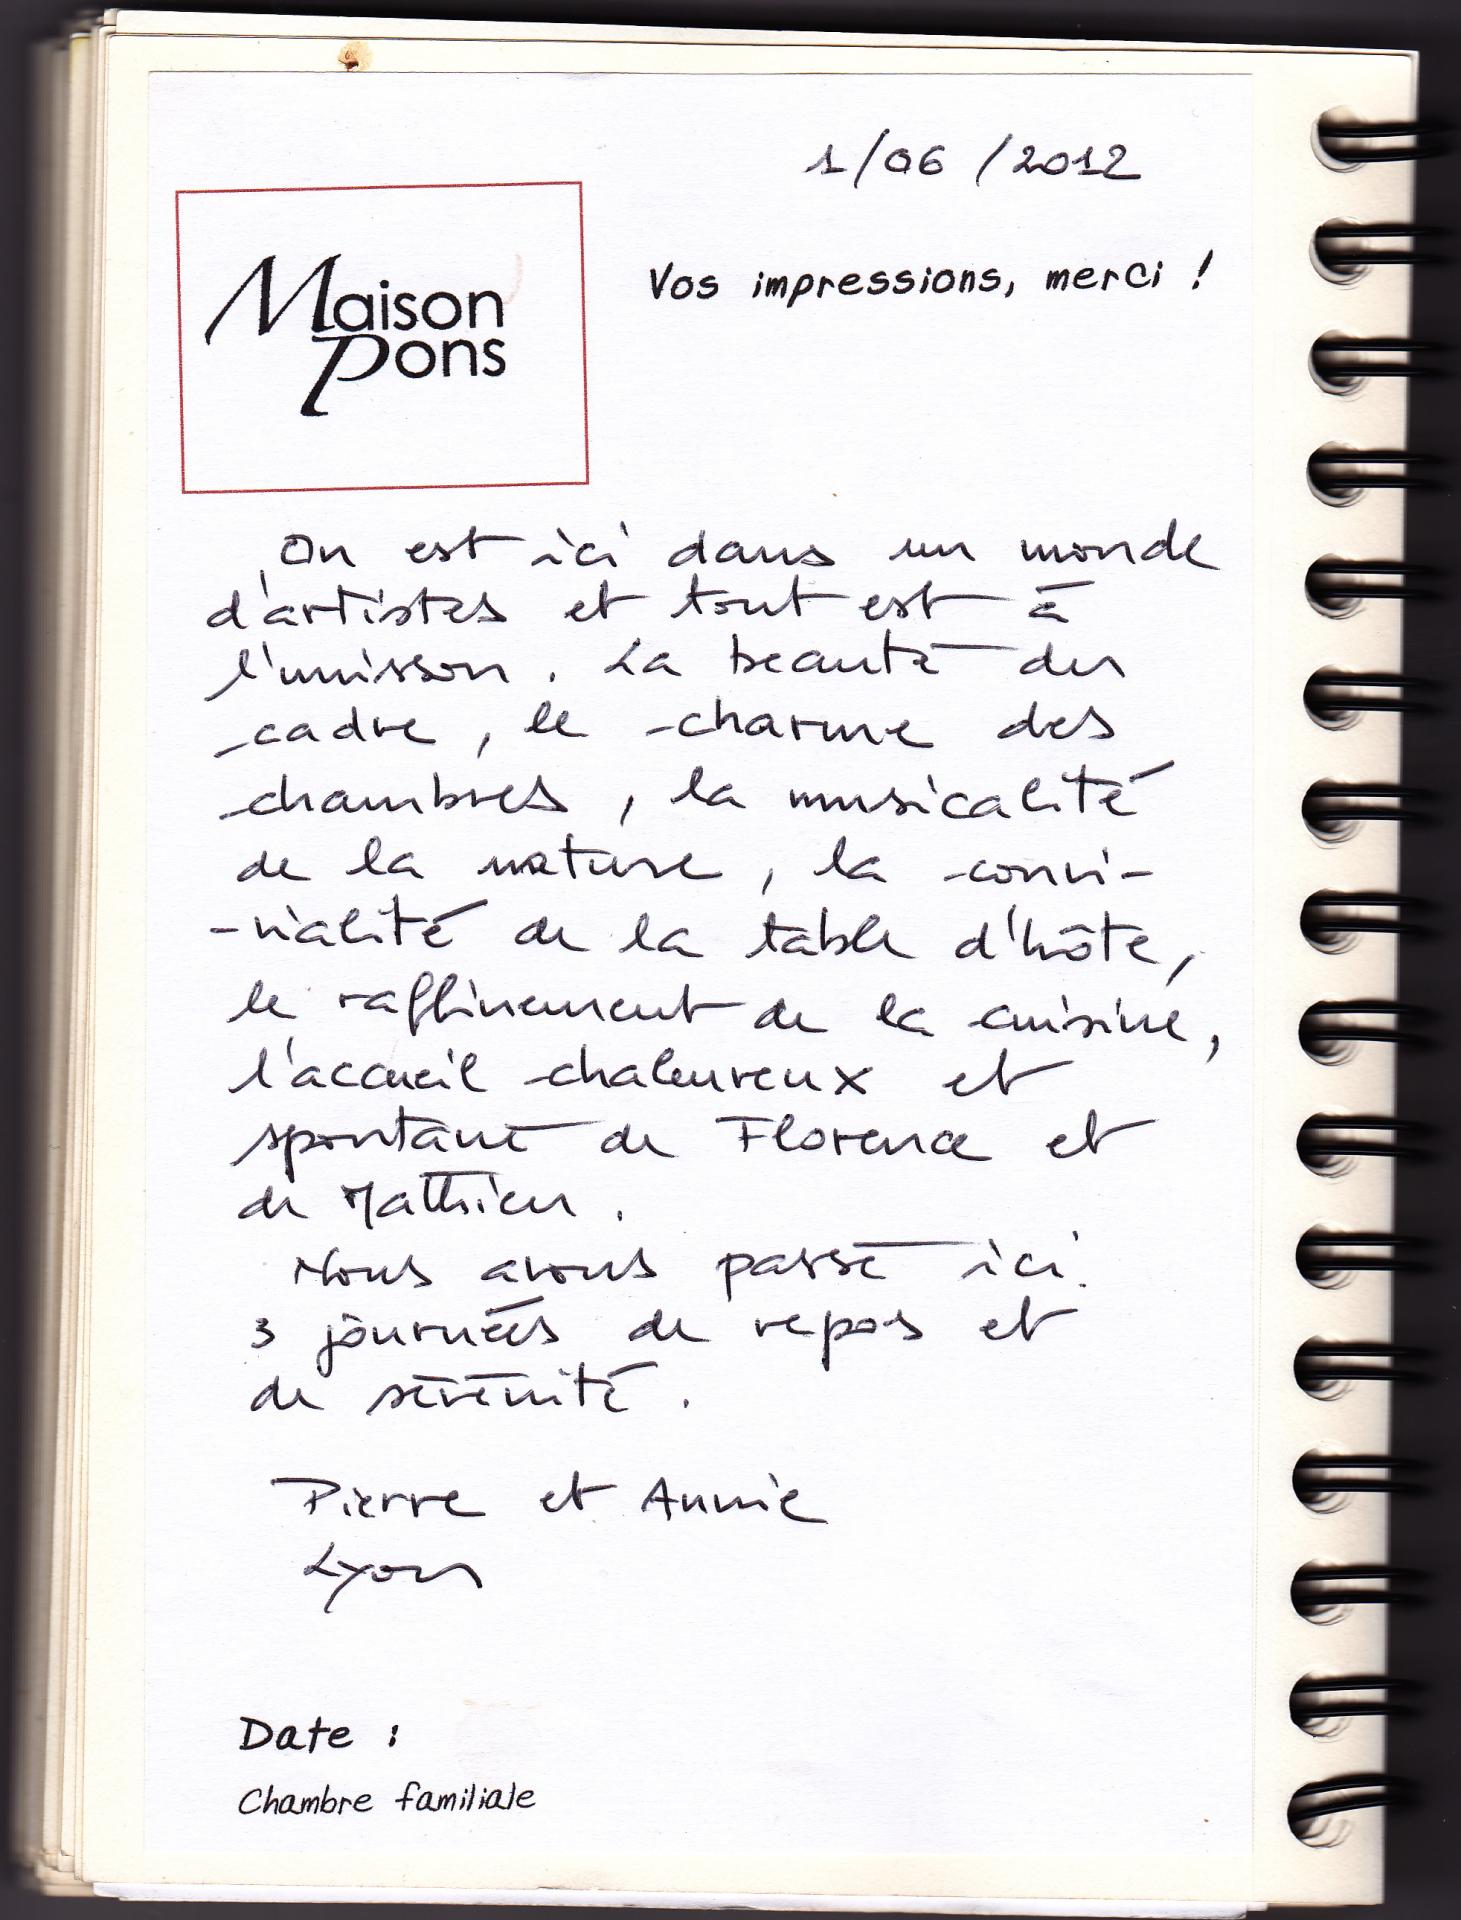 1/06/2012
Maison
Pons
Vos impressions, merci !
On est ici dans un monde
d'artistes et tout est à
l'unisson. La beauté du
cadre, le charme des
chambres, la musicalité
de la nature, la convi-
-vialité de la table d'hôte,
le raffinement de la cuisine,
l'accueil chaleureux et
spontané de Florence et
de Mathieu.
Nous avons passé ici
3 journées de repos et
de sérénité.
Pierre et Annie
Lyon
Date :
Chambre familiale